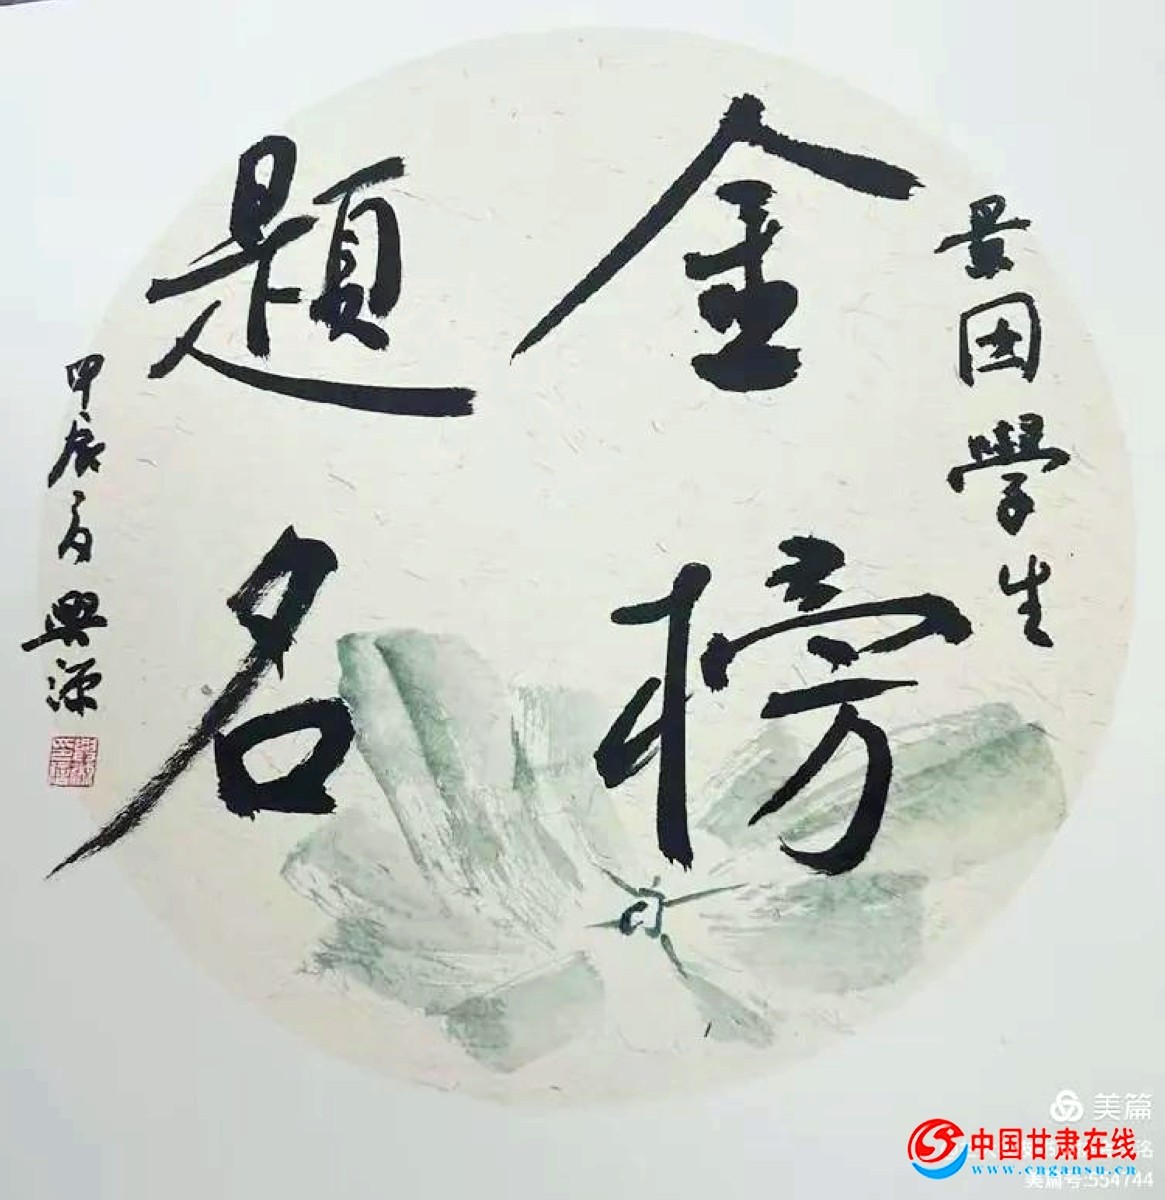 景因學生
金榜
題名
甲辰夏 興源
美篇
中国甘肃在线
www.cngansu.cn
美篇号:554744